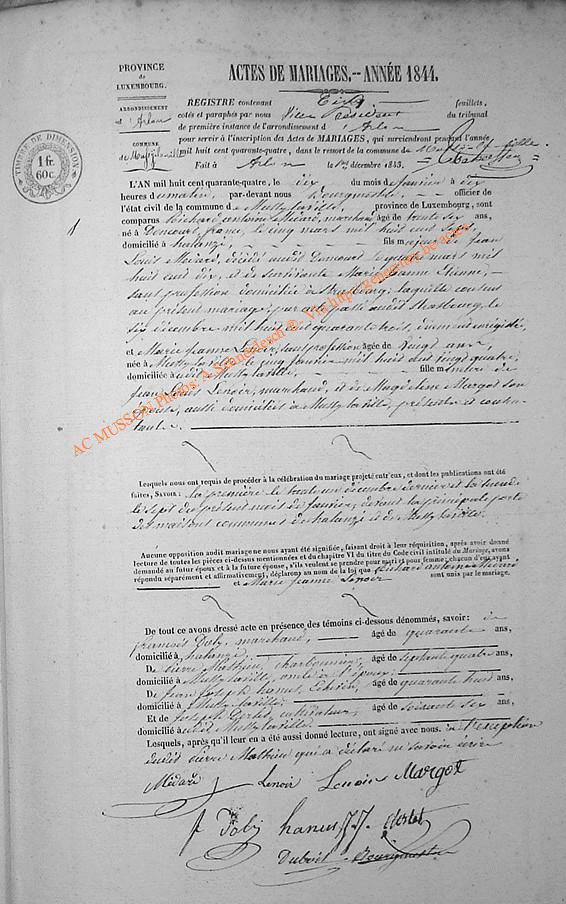 PROVINCE
de
LUXEMBOURG.
ARRONDISSEMENT
d'Arlon
COMMUNE
de Mussy-la-ville
TIMBRE DE DIMENSION
1 fr.
60c.
ACTES DE MARIAGES.-- ANNÉE 1844.
REGISTRE contenant Dix feuillets,
cotés et paraphés par nous Vice Président du tribunal
de première instance de l'arrondissement d'Arlon
pour servir à l'inscription des Actes de MARIAGES, qui surviendront pendant l'année
mil huit cent quarante-quatre, dans le ressort de la commune de Mussy-la-ville
Fait à Arlon le 1er décembre 1843.
1
L'AN mil huit cent quarante-quatre, le dix du mois de Janvier à dix
heures du matin, par-devant nous Bourgmestre officier de
l'état civil de la commune de Mussy-la-ville, province de Luxembourg, sont
comparus Richard antoine Médard, marchand âgé de trente six ans,
né à Doncourt, france, le cinq mars mil huit cent sept,
domicilié à halanzi, fils majeur de Jean
Louis Médard, décédé audit Doncourt le quatre mars mil
huit cent dix, et de survivante Marie Jeanne Etienne,
sans profession domiciliée à Strasbourg, laquelle consent
au présent mariage, par acte passé audit Strasbourg, le
six décembre mil huit cent quarante trois, dument enrégistré,
et Marie Jeanne Lenoir, sans profession âgée de vingt ans,
née à Mussy-la-ville, le cinq Janvier mil huit cent vingt quatre,
domiciliée audit Mussy-la-ville, fille mineure de
Jean Louis Lenoir, marchand, et de Magdeleine Margot son
épouse, aussi domiciliés à Mussy-la-ville, présents et consen-
tants.
Lesquels nous ont requis de procéder à la célébration du mariage projeté entr'eux, et dont les publications ont été
faites, SAVOIR: la première le trente un décembre dernier et la seconde
le sept du présent mois de Janvier, devant la principale porte
des maisons communes de halanzi et de Mussy-la-ville.
Aucune opposition audit mariage ne nous ayant été signifiée, faisant droit à leur réquisition, après avoir donné
lecture de toutes les pièces ci-dessus mentionnées et du chapitre VI du titre du Code civil intitulé du Mariage, avons
demandé au futur époux et à la future épouse, s'ils veulent se prendre pour mari et pour femme; chacun d'eux ayant
répondu séparément et affirmativement, déclarons au nom de la loi que Richard antoine Médard
et Marie Jeanne Lenoir sont unis par le mariage.
De tout ce avons dressé acte en présence des témoins ci-dessous dénommés, savoir: de
françois Doby, marchand, âgé de quarante ans,
domicilié à halanzi.
De Pierre Mathieu, charbonnier, âgé de septante quatre ans,
domicilié à Mussy-la-ville, oncle à l'époux.
De Jean Joseph hanus, âgé de quarante huit ans,
domicilié à Mussy-la-ville.
Et de Joseph Perlot, cultivateur, âgé de soixante six ans,
domicilié audit Mussy-la-ville.
Lesquels, après qu'il leur en a été aussi donné lecture, ont signé avec nous. à l'exception
dudit Pierre Mathieu qui a déclaré ne savoir écrire
Médard Lenoir Lenoir Margot
f Doby hanus JJ. Perlot
Dubois Bourgmestre
AC MUSSON Photos: A. Schannesch © - Via https://geneanexe.be/actes/